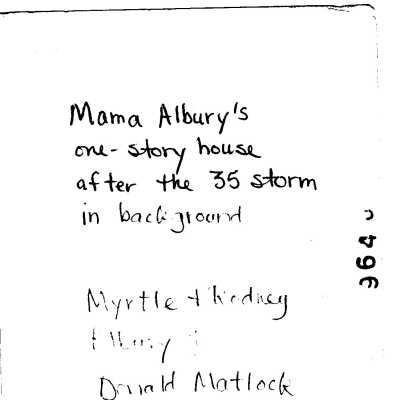 Mama Albury's
one-story house
after the 35 storm
in background
Myrtle + Rodney
Albury
Donald Matlock